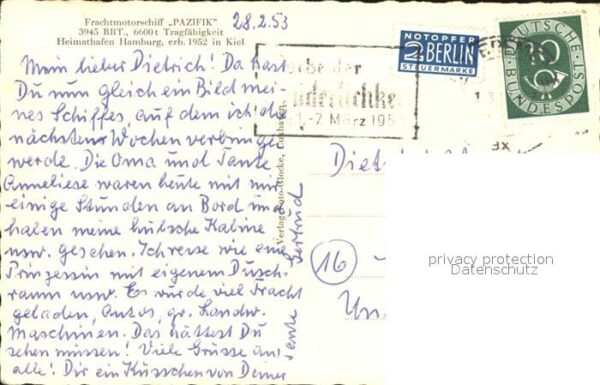 Frachtmotorschiff „PAZIFIK"
3945 BRT., 6600 t Tragfähigkeit
Heimathafen Hamburg, erb. 1952 in Kiel
28.2.53
Mein lieber Dietrich! Da hast
Du nun gleich ein Bild mei-
nes Schiffes, auf dem ich die
nächsten Wochen verbringen
werde. Die Oma und Tante
Anneliese waren heute mit mir
einige Stunden an Bord und
haben meine hübsche Kabine
usw. gesehen. Ich reise wie eine
Prinzessin mit eigenem Dusch-
raum usw. Es wurde viel Fracht
geladen, Autos, gr. Landw.
Maschinen. Das hättest Du
sehen müssen! Viele Grüsse an
alle! Dir ein Küsschen von Deiner
Tante Gertrud
der
1.-7. März 195
NOTOPFER
2 BERLIN
STEUERMARKE
DEUTSCHE
BUNDESPOST
10
16
privacy protection
Datenschutz